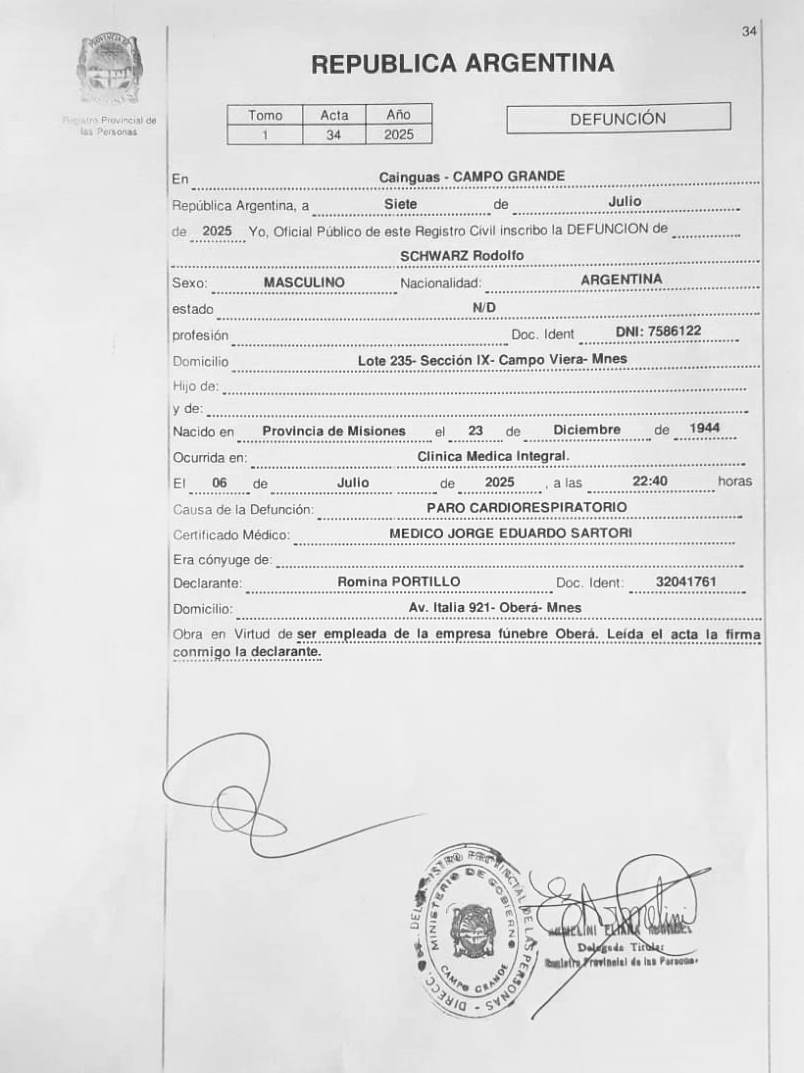 34
PROVINCIA DE
Registro Provincial de
las Personas
REPUBLICA ARGENTINA
Tomo Acta Año
1 34 2025
DEFUNCIÓN
En Cainguas - CAMPO GRANDE
República Argentina, a Siete de Julio
de 2025 Yo, Oficial Público de este Registro Civil inscribo la DEFUNCION de
SCHWARZ Rodolfo
Sexo: MASCULINO Nacionalidad: ARGENTINA
estado N/D
profesión Doc. Ident DNI: 7586122
Domicilio Lote 235- Sección IX- Campo Viera- Mnes
Hijo de:
y de:
Nacido en Provincia de Misiones el 23 de Diciembre de 1944
Ocurrida en: Clinica Medica Integral.
El 06 de Julio de 2025 , a las 22:40 horas
Causa de la Defunción: PARO CARDIORESPIRATORIO
Certificado Médico: MEDICO JORGE EDUARDO SARTORI
Era cónyuge de:
Declarante: Romina PORTILLO Doc. Ident: 32041761
Domicilio: Av. Italia 921- Oberá- Mnes
Obra en Virtud de ser empleada de la empresa fúnebre Oberá. Leída el acta la firma
conmigo la declarante.
DIRECC. DEL REGISTRO PROVINCIAL DE LAS PERSONAS -
MINISTERIO DE GOBIERNO
CAMPO GRANDE
ELIANA
Delegada Titular
Registro Provincial de las Personas